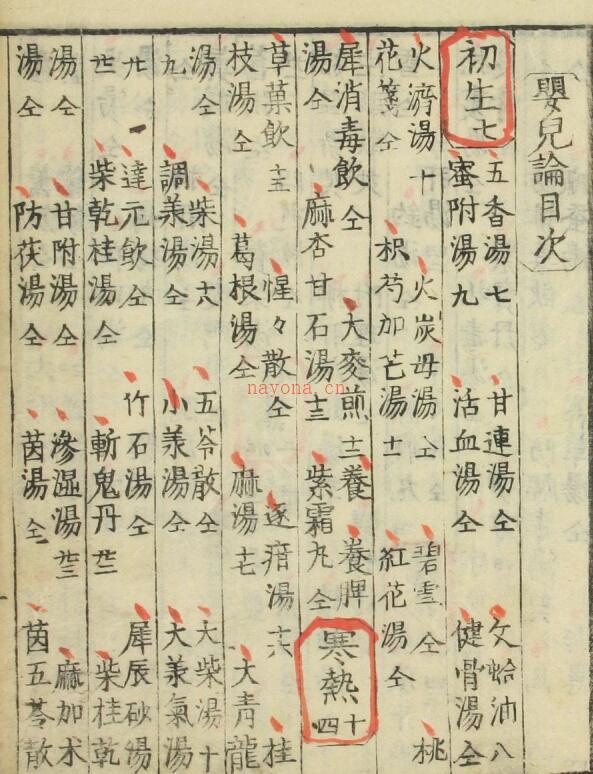 嬰兒論目次
初生七
五香湯七 甘連湯仝 文蛤油八
蜜附湯九 活血湯仝 健骨湯仝
火濟湯十 火炭母湯仝 碧雪仝 桃
花仝 枳芍加芒湯十一 紅花湯仝
犀消毒飲仝 大麥煎十二 養脾
湯仝 麻杏甘石湯十三 紫霜丸仝
寒熱十四
草菓飲十五 惺々散仝 逐湯十六 桂
枝湯仝 葛根湯仝 麻湯十七 大青龍
湯仝 柴湯十八 五苓散仝 大柴湯十
九 調羕湯仝 小羕湯仝 大羕氣湯
廿 達元飲仝 竹石湯仝 犀辰砂湯
柴乾桂湯仝 斬鬼丹 柴桂乾
湯仝 甘附湯仝 滲湿湯廿三 麻加术
湯仝 防茯湯仝 茵湯仝 茵五苓散
nayona.cn